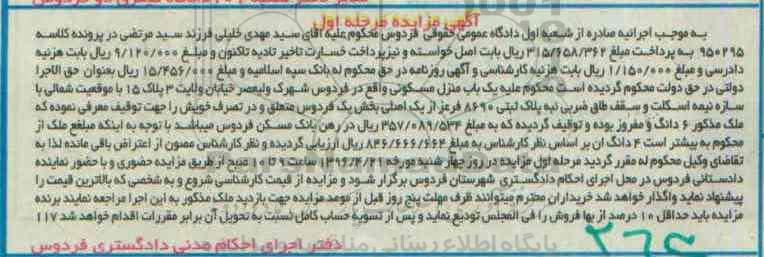 آگهی مزایده مرحله اول
به موجب اجرائیه صادره از شعبه اول دادگاه عمومی حقوقی فردوس محکوم علیه آقای سید مهدی خلیلی فرزند سید مرتضی در پرونده کلاسه
۹۵۰۲۹۵ به پرداخت مبلغ ۳۱۵/۶۵۸/۳۶۲ ریال بابت اصل خواسته و نیز پرداخت خسارت تاخیر تادیه تاکنون و مبلغ ۹/۱۲۰/۰۰۰ ریال بابت هزینه
دادرسی و مبلغ ۱/۱۵۰/۰۰۰ ریال بابت هزینه کارشناسی و آگهی روزنامه در حق محکوم له بانک سپه اسلامیه و مبلغ ۱۵/۴۵۶/۰۰۰ ریال بعنوان حق الاجرا
دولتی در حق دولت محکوم گردیده است محکوم علیه یک باب منزل مسکونی واقع در فردوس شهرک ولیعصر خیابان ولایت ۳ پلاک ۱۵ با موقعیت شمالی با
سازه نیمه اسکلت و سقف طاق ضربی به پلاک ثبتی ۸۶۹۰ فرعی از یک اصلی بخش یک فردوس متعلق و در تصرف خویش را جهت توقیف معرفی نموده که
ملک مذکور ۶ دانگ و مفروز بوده و توقیف گردیده که به مبلغ ۳۵۷/۰۸۹/۵۳۴ ریال در رهن بانک مسکن فردوس میباشد با توجه به اینکه مبلغ ملک از
محکوم به بیشتر است ۴ دانگ آن بر اساس نظر کارشناس به مبلغ ۸۴۶/۶۶۶/۶۶۲ ریال ارزیابی گردیده و نظر کارشناس مصون از اعتراض باقی مانده لذا به
تقاضای وکیل محکوم له مقرر گردید مرحله اول مزایده در روز چهارشنبه مورخه ۱۳۹۶/۴/۲۱ ساعت ۹ تا ۱۰ صبح از طریق مزایده حضوری و با حضور نماینده
دادستانی فردوس در محل اجرای احکام دادگستری شهرستان فردوس برگزار شود و مزایده از قیمت کارشناسی شروع و به شخصی که بالاترین قیمت را
پیشنهاد نماید واگذار خواهد شد خریداران محترم میتوانند ظرف مهلت پنج روز قبل از موعد مزایده جهت بازدید ملک مذکور به این اجرا مراجعه نمایند برنده
مزایده باید حداقل ۱۰ درصد از بها فروش را فی المجلس تودیع نماید و پس از تسویه حساب کامل نسبت به تحویل آن برابر مقررات اقدام خواهد شد ۱۱۷
دفتر اجرای احکام مدنی دادگستری فردوس